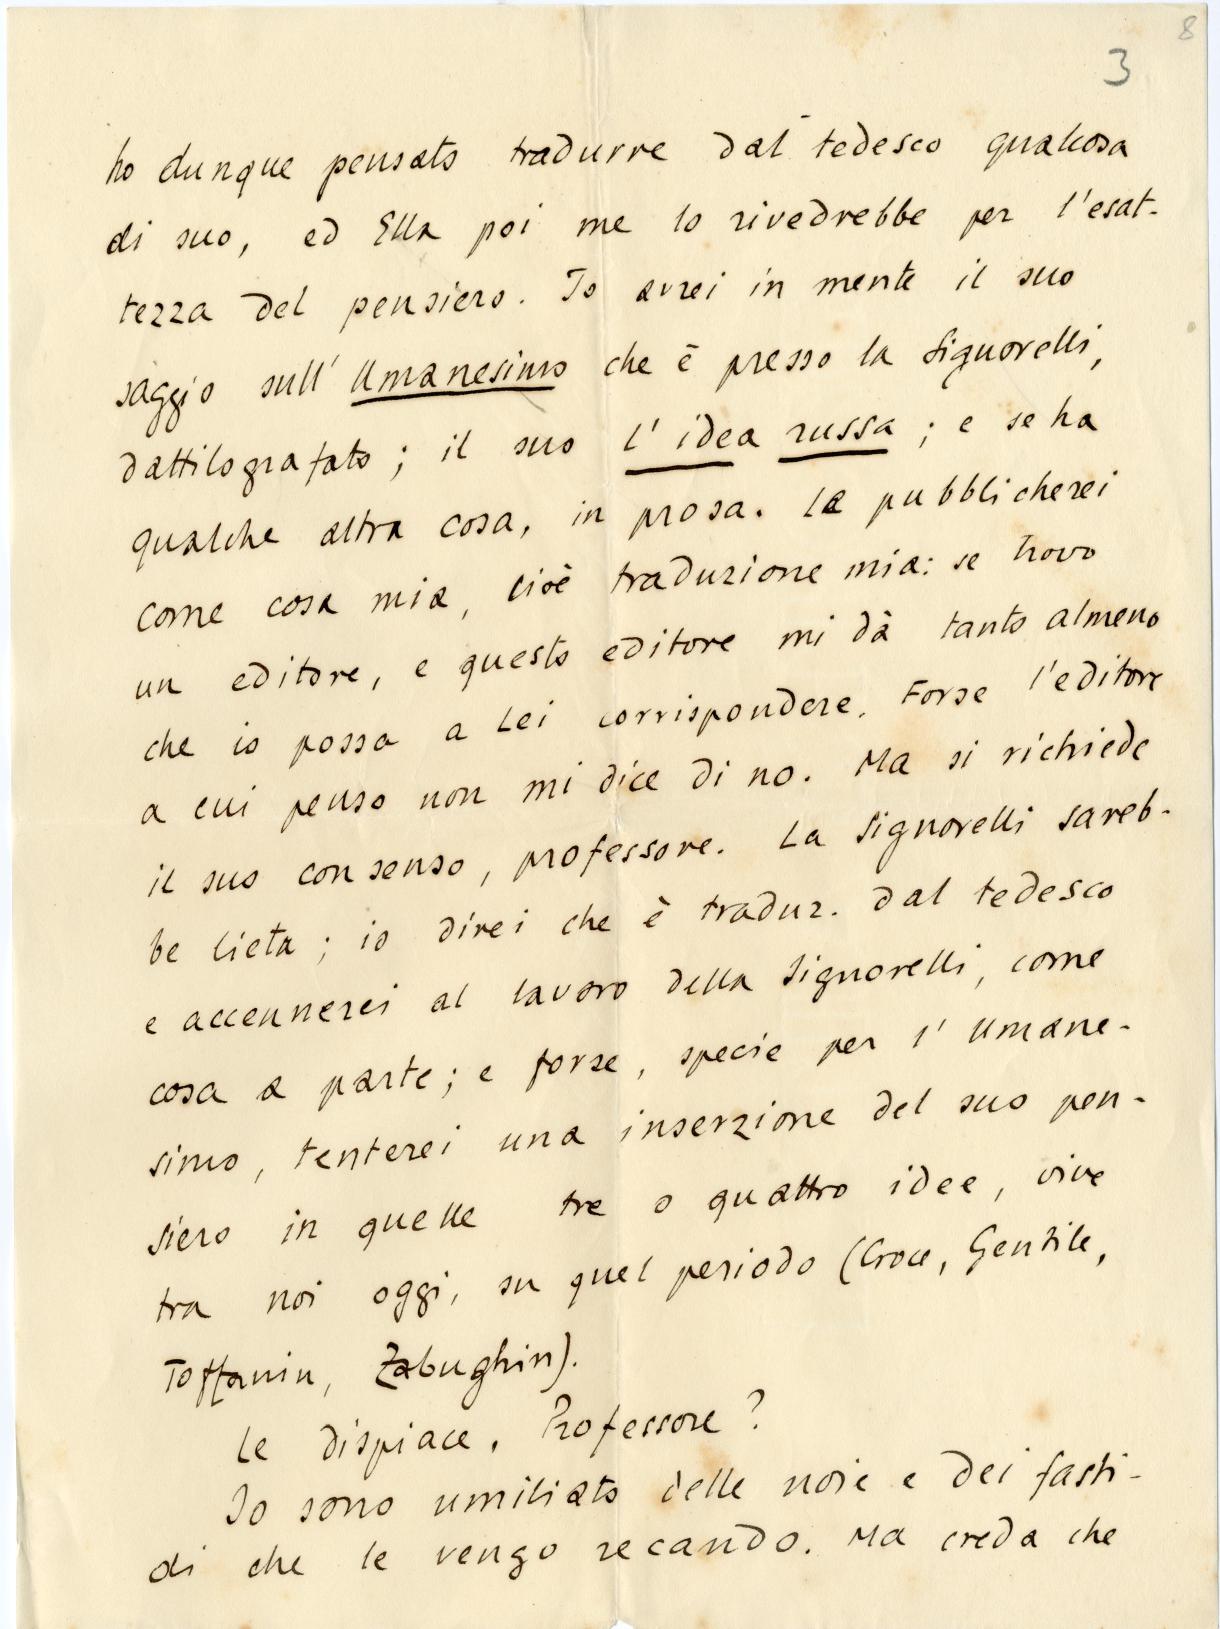 8
3
ho dunque pensato tradurre dal tedesco qualcosa
di suo, ed Ella poi me lo rivedrebbe per l'esat-
tezza del pensiero. Io avrei in mente il suo
saggio sull'Umanesimo che è presso la Signorelli,
dattilografato; il suo l'idea russa; e se ha
qualche altra cosa, in prosa. La pubblicherei
come cosa mia, cioè traduzione mia: se trovo
un editore, e questo editore mi dà tanto almeno
che io possa a Lei corrispondere. Forse l'editore
a cui penso non mi dice di no. Ma si richiede
il suo consenso, professore. La Signorelli sareb-
be lieta; io direi che è traduz. dal tedesco
e accennerei al lavoro della Signorelli, come
cosa a parte; e forse, specie per l'Umane-
simo, tenterei una inserzione del suo pen-
siero in quelle tre o quattro idee, vive
tra noi oggi, su quel periodo (Croce, Gentile,
Toffanin, Zabughin).
Le dispiace, Professore?
Io sono umiliato delle noie e dei fasti-
di che le vengo recando. Ma creda che